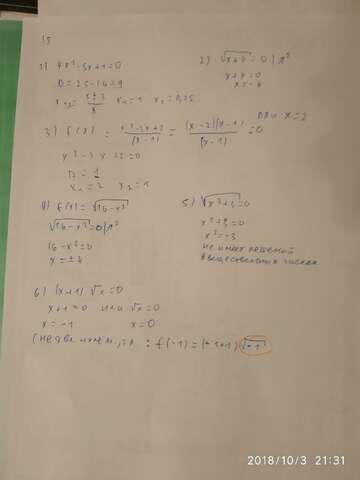 15
1) 4x²-5x+1=0
D=25-16=9
x₁,₂= (5±3)/8 x₁=1 x₂=0,25
2) √(x+4)=0 |²
x+4=0
x=-4
3) f(x)= (x²-3x+2)/(x-1) = ((x-2)(x-1))/(x-1) =0 при x=2
x²-3x+2=0
D=1
x₁=2 x₂=1
4) f(x)=√(16-x²)
√(16-x²)=0 |²
16-x²=0
x=±4
5) √(x²+3)=0
x²+3=0
x²=-3
не имеет решений
в вещественных числах
6) (x+1)√x=0
x+1=0 или √x=0
x=-1 x=0
: f(-1)=(-1+1)√-1
2018/10/3 21:31